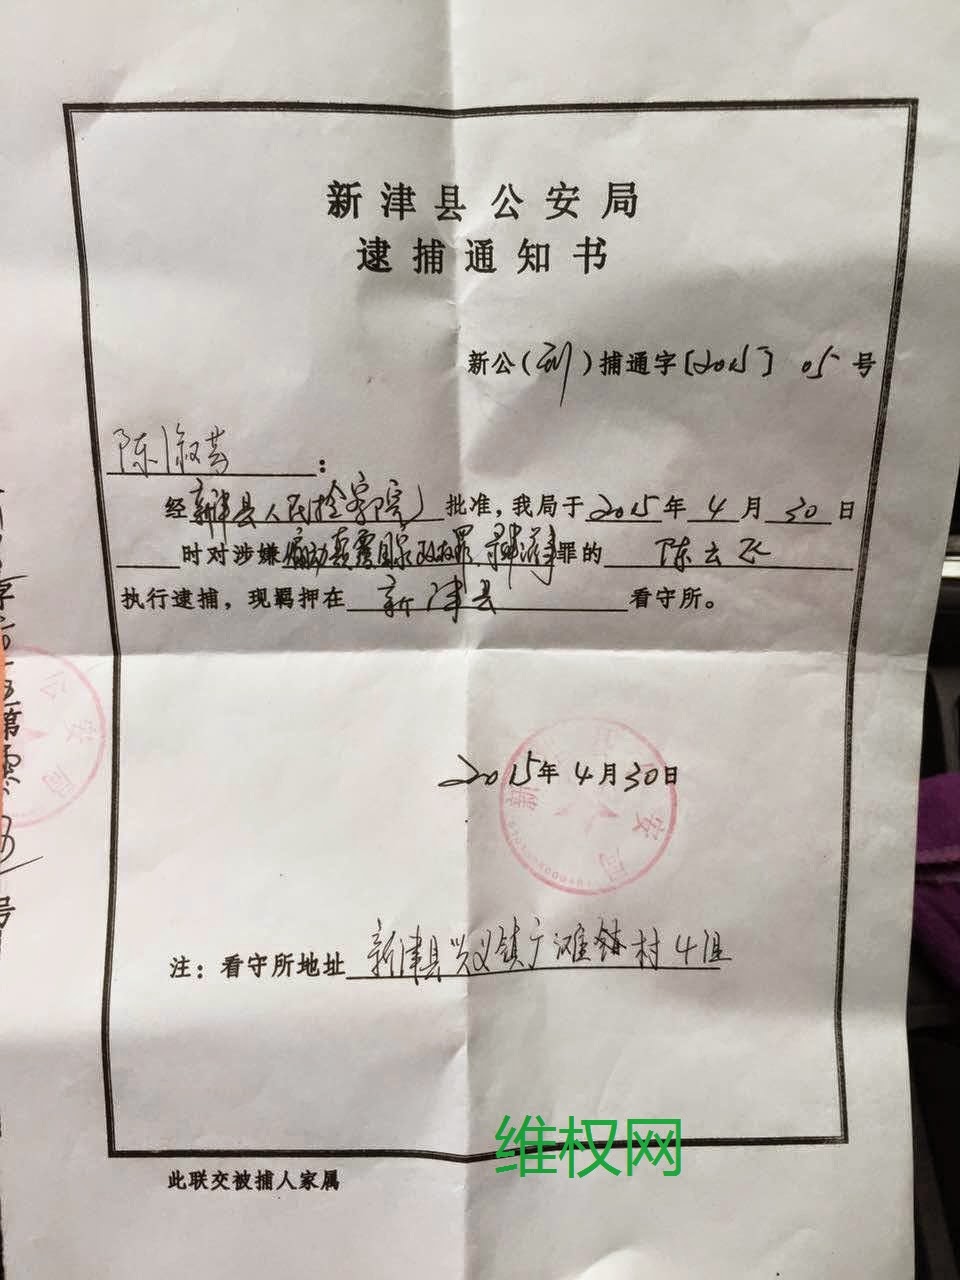 新津县公安局
逮捕通知书
新公(刑)捕通字[2015] 05号
陈淑芸:
经新津县人民检察院批准,我局于2015年4月30日
时对涉嫌煽动颠覆国家政权罪、寻衅滋事罪的陈云飞
执行逮捕,现羁押在新津县看守所。
2015年4月30日
公安局
注:看守所地址新津县兴义镇广滩村4组
此联交被捕人家属
维权网
公安局
号